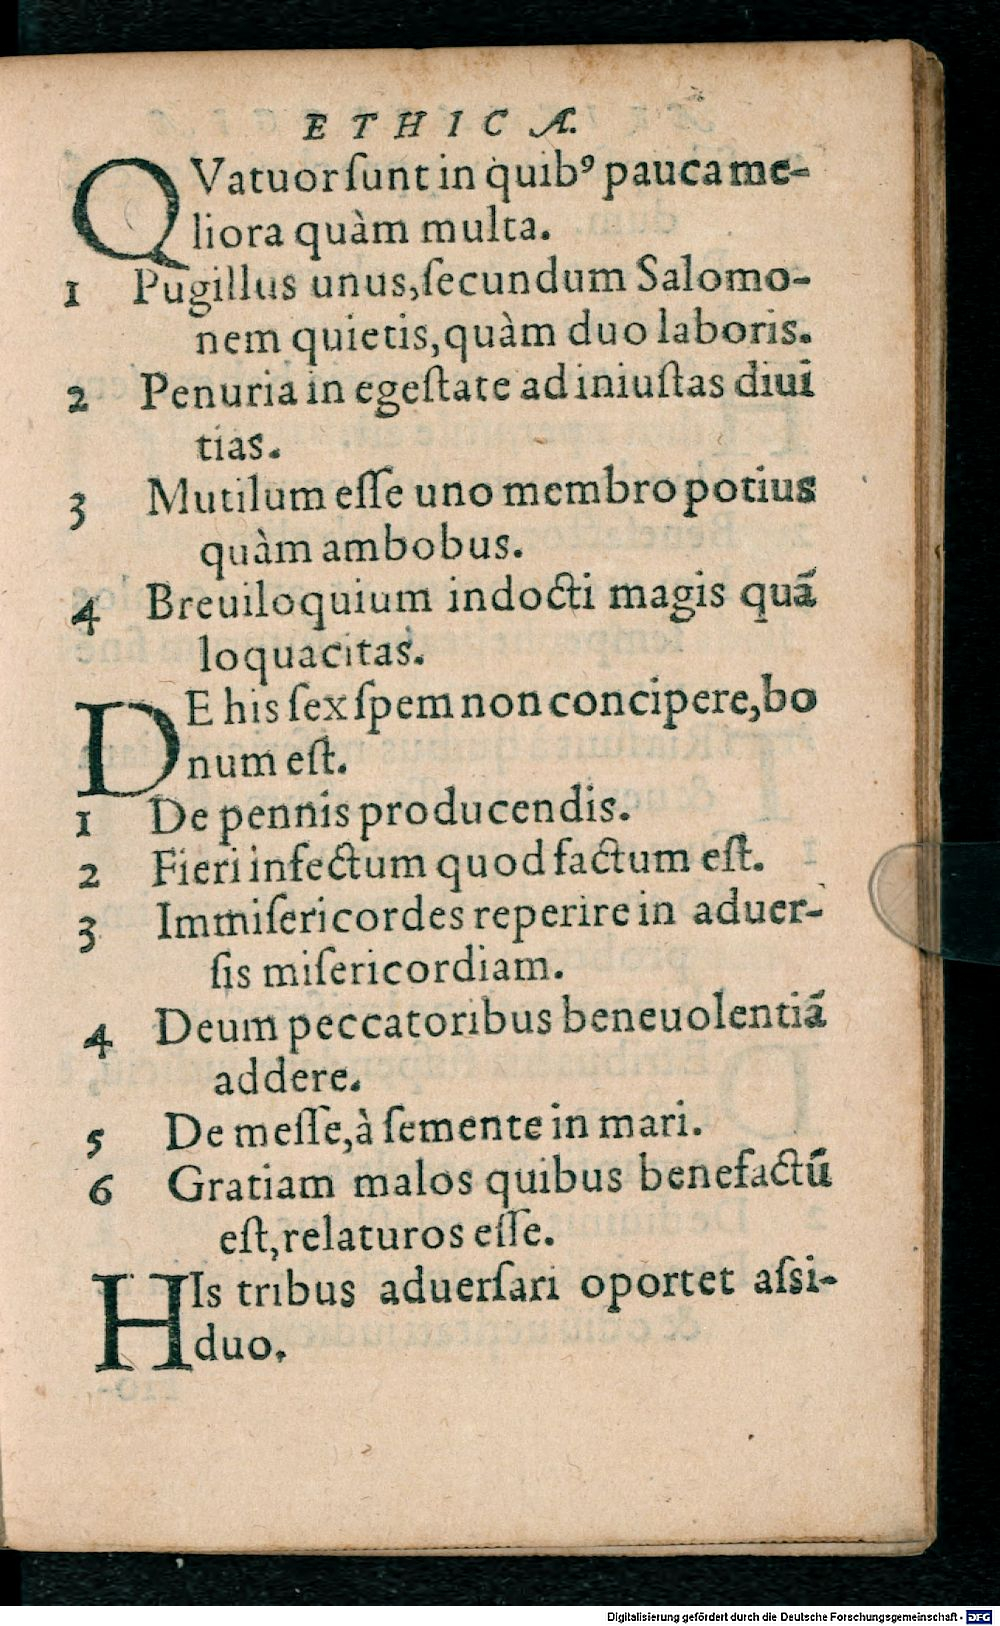 ETHICA.
QVatuor ſunt in quibꝰ pauca me-
liora quàm multa.
1 Pugillus unus, ſecundum Salomo-
nem quietis, quàm duo laboris.
2 Penuria in egeſtate ad iniuſtas diui
tias.
3 Mutilum eſſe uno membro potius
quàm ambobus.
4 Breuiloquium indocti magis quā
loquacitas.
DE his ſex ſpem non concipere, bo
num eſt.
1 De pennis producendis.
2 Fieri infectum quod factum eſt.
3 Immiſericordes reperire in aduer-
ſis miſericordiam.
4 Deum peccatoribus beneuolentiā
addere.
5 De meſſe, à ſemente in mari.
6 Gratiam malos quibus benefactū
eſt, relaturos eſſe.
HIs tribus aduerſari oportet aſsi-
duo.
Digitalisierung gefördert durch die Deutsche Forschungsgemeinschaft - DFG